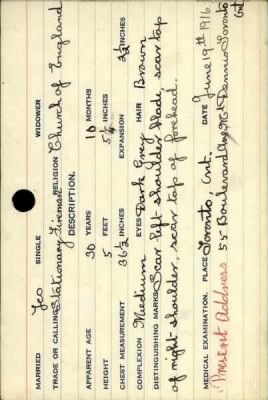 MARRIED Yes SINGLE WIDOWER
TRADE OR CALLING Stationary Fireman RELIGION Church of England
DESCRIPTION.
APPARENT AGE 30 YEARS 10 MONTHS
HEIGHT 5 FEET 5½ INCHES
CHEST MEASUREMENT 36½ INCHES EXPANSION 2½ INCHES
COMPLEXION Medium EYES Dark Grey HAIR Brown
DISTINGUISHING MARKS Scar left shoulder blade, scar top
of right shoulder, scar top of forehead.
MEDICAL EXAMINATION. PLACE Toronto, Ont. DATE June 19th 1916
Present Address 55 Boulevard Ave Mt Dennis Toronto
Ont